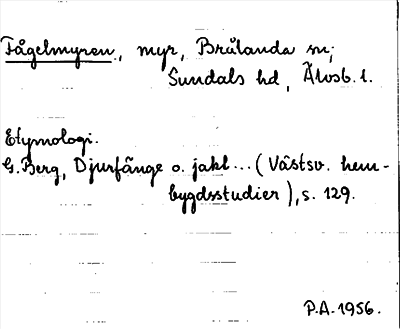 Fågelmyren, myr, Brålanda sn;
Sundals hd, Älvsb. l.
Etymologi.
G. Berg, Djurfänge o. jakt ... (Västsv. hem-
bygdsstudier), s. 129.
P.A. 1956.